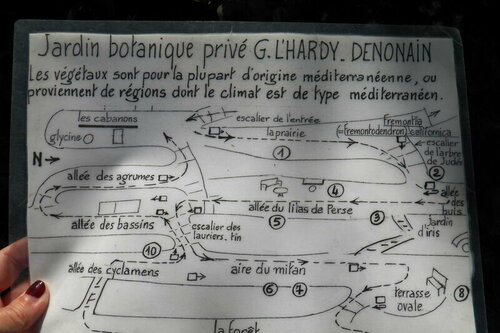 Jardin botanique privé G. L'HARDY_DENONAIN
Les végétaux sont pour la plupart d'origine méditerranéenne, ou
proviennent de régions dont le climat est de type méditerranéen.
les cabanons
glycine
escalier de l'entrée
la prairie
Fremontia
(=Fremontodendron) californica
escalier
de l'arbre
de Judée
N
①
②
allée des agrumes
④
allée
des
buis
allée du lilas de Perse
⑤
③
Jardin
d'iris
allée des bassins
escalier des
lauriers. tin
⑩
allée des cyclamens
aire du milan
⑥ ⑦
terrasse
ovale
⑧
la forêt